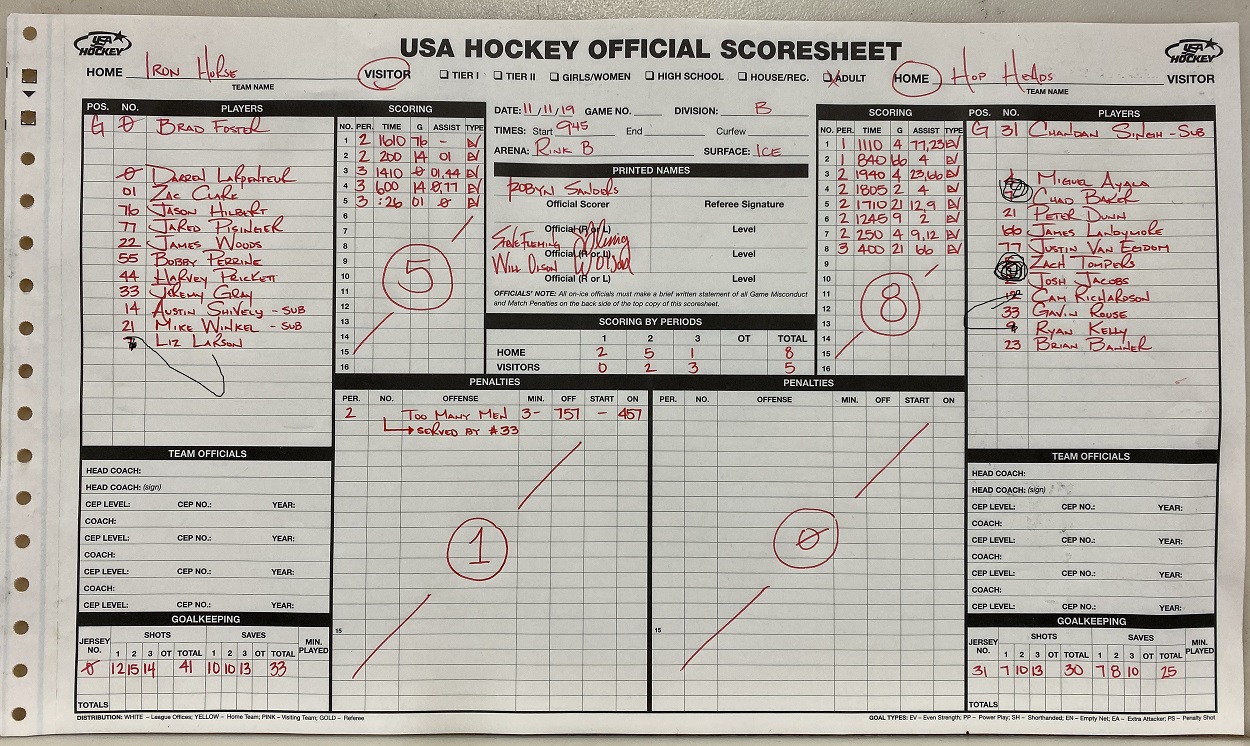 USA HOCKEY OFFICIAL SCORESHEET
USA HOCKEY
HOME IRON HORSE VISITOR
TEAM NAME
TIER I TIER II GIRLS/WOMEN HIGH SCHOOL HOUSE/REC. ADULT
HOME HOP HEADS VISITOR
TEAM NAME
USA HOCKEY
POS. NO. PLAYERS
G 0 BRAD FOSTER
0 DARREN LARPENTEUR
01 ZAC CLARK
76 JASON HILBERT
77 JARED PISINGER
22 JAMES WOODS
55 BOBBY PERRINE
44 HARVEY PRICKETT
33 JEREMY GRAY
14 AUSTIN SHIVELY - SUB
21 MIKE WINKEL - SUB
LIZ LARSON
SCORING
NO. PER. TIME G ASSIST TYPE
1 2 1610 76 - EV
2 2 200 14 01 EV
3 3 1410 0 01,44 EV
4 3 600 14 0,77 EV
5 3 :26 01 0 EV
6
7
8
9
10
11
12
13
14
15
16
5
DATE: 11/11/19 GAME NO. DIVISION: B
TIMES: Start 945 End Curfew
ARENA: RINK B SURFACE: ICE
PRINTED NAMES
ROBYN SANDERS
Official Scorer Referee Signature
Official (R or L) Level
STEVE FLEMING
Official (R or L) Level
WILL OLSON
Official (R or L) Level
OFFICIALS' NOTE: All on-ice officials must make a brief written statement of all Game Misconduct
and Match Penalties on the back side of the top copy of this scoresheet.
SCORING BY PERIODS
1 2 3 OT TOTAL
HOME 2 5 1 8
VISITORS 0 2 3 5
SCORING
NO. PER. TIME G ASSIST TYPE
1 1 1110 4 77,23 EV
2 1 840 66 4 EV
3 2 1940 4 23,66 EV
4 2 1805 2 4 EV
5 2 1710 21 12,9 EV
6 2 1245 9 2 EV
7 2 250 4 9,12 EV
8 3 400 21 66 EV
9
10
11
12
13
14
15
16
8
POS. NO. PLAYERS
G 31 CHANDAN SINGH - SUB
MIGUEL AYALA
CHAD BAKER
21 PETER DUNN
66 JAMES LANDYMORE
77 JUSTIN VAN EGDOM
ZACH TOMPERS
JOSH JACOBS
12 CAM RICHARDSON
33 GAVIN ROUSE
9 RYAN KELLY
23 BRIAN BANNER
PENALTIES
PER. NO. OFFENSE MIN. OFF START ON
2 TOO MANY MEN 3- 757 - 457
SERVED BY #33
1
15
PENALTIES
PER. NO. OFFENSE MIN. OFF START ON
0
15
TEAM OFFICIALS
HEAD COACH:
HEAD COACH: (sign)
CEP LEVEL: CEP NO.: YEAR:
COACH:
CEP LEVEL: CEP NO.: YEAR:
COACH:
CEP LEVEL: CEP NO.: YEAR:
COACH:
CEP LEVEL: CEP NO.: YEAR:
GOALKEEPING
JERSEY NO. SHOTS SAVES MIN. PLAYED
1 2 3 OT TOTAL 1 2 3 OT TOTAL
0 12 15 14 41 10 10 13 33
TOTALS
TEAM OFFICIALS
HEAD COACH:
HEAD COACH: (sign)
CEP LEVEL: CEP NO.: YEAR:
COACH:
CEP LEVEL: CEP NO.: YEAR:
COACH:
CEP LEVEL: CEP NO.: YEAR:
COACH:
CEP LEVEL: CEP NO.: YEAR:
GOALKEEPING
JERSEY NO. SHOTS SAVES MIN. PLAYED
1 2 3 OT TOTAL 1 2 3 OT TOTAL
31 7 10 13 30 7 8 10 25
TOTALS
DISTRIBUTION: WHITE – League Offices; YELLOW – Home Team; PINK – Visiting Team; GOLD – Referee
GOAL TYPES: EV – Even Strength; PP – Power Play; SH – Shorthanded; EN – Empty Net; EA – Extra Attacker; PS – Penalty Shot